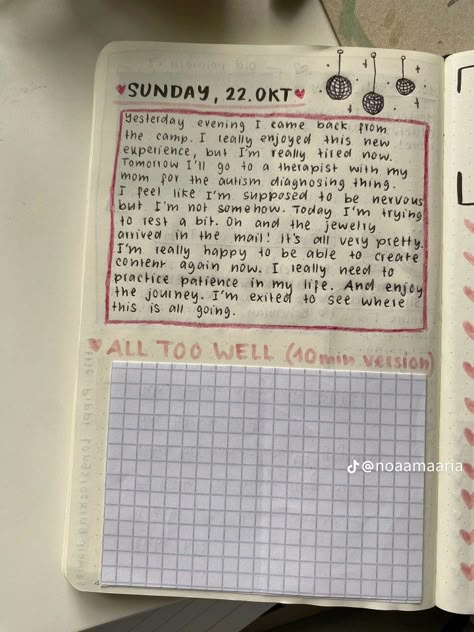 SUNDAY, 22. OKT
Yesterday evening I came back from
the camp. I really enjoyed this new
experience, but I'm really tired now.
Tomorrow I'll go to a therapist with my
mom for the autism diagnosing thing.
I feel like I'm supposed to be nervous
but I'm not somehow. Today I'm trying
to rest a bit. Oh and the jewelry
arrived in the mail! It's all very pretty.
I'm really happy to be able to create
content again now. I really need to
practice patience in my life. And enjoy
the journey. I'm exited to see where
this is all going.
ALL TOO WELL (10min version)
@noaamaaria